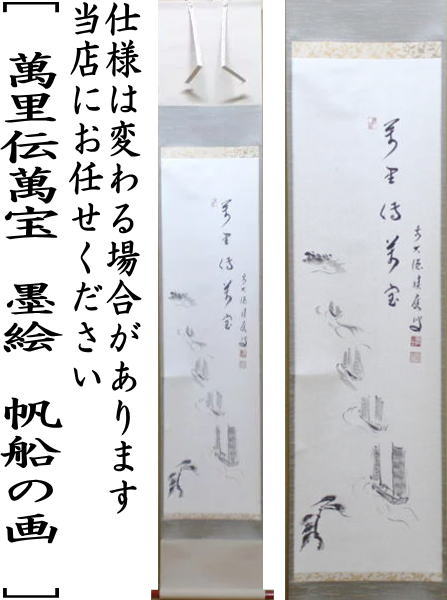 仕様は変わる場合があります
当店にお任せください
[萬里伝萬宝 墨絵 帆船の画]
萬里伝萬宝